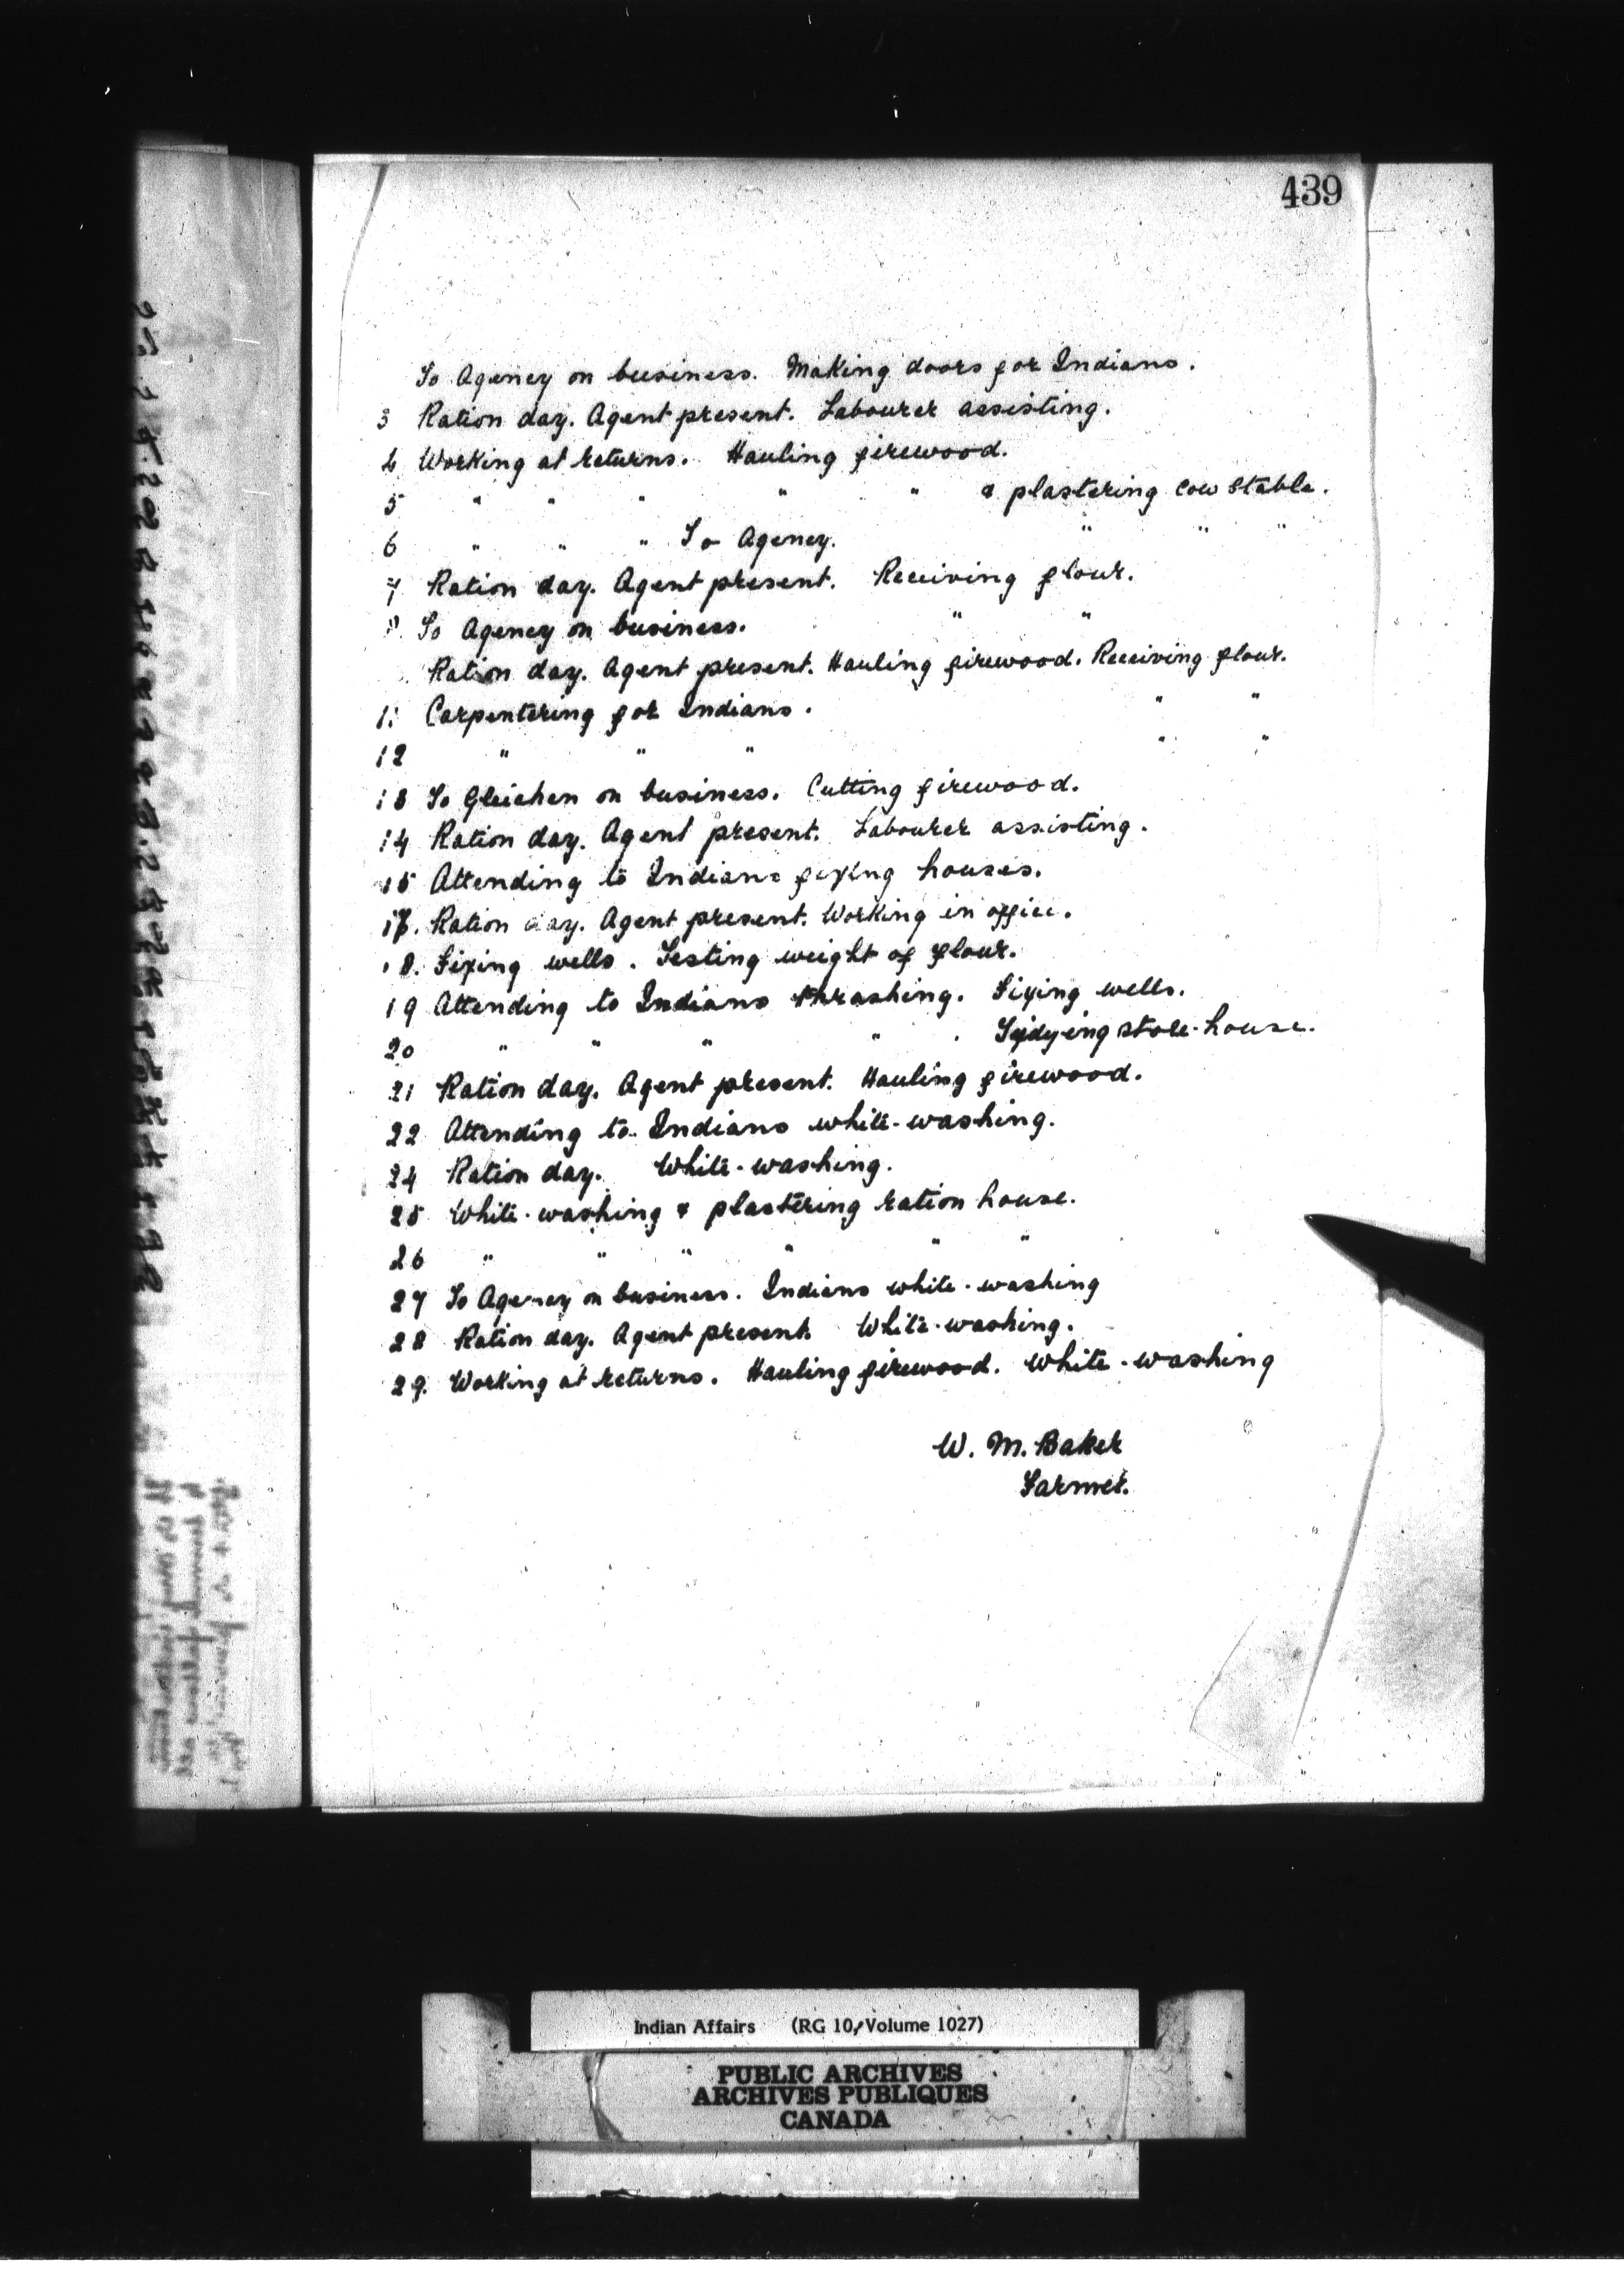 439
To Agency on business. Making doors for Indians.
3 Ration day. Agent present. Labourer assisting.
4 Working at returns. Hauling firewood.
5 " " " " " & plastering cow stable.
6 " " " To Agency. " " "
7 Ration day. Agent present. Receiving flour.
8. To Agency on business. " "
Ration day. Agent present. Hauling firewood. Receiving flour.
11 Carpentering for Indians. " "
12 " " " " "
13 To Gleichen on business. Cutting firewood.
14 Ration day. Agent present. Labourer assisting.
15 Attending to Indians fixing houses.
17. Ration day. Agent present. Working in office.
18. Fixing wells. Testing weight of flour.
19 Attending to Indians thrashing. Fixing wells.
20 " " " " . Tidying store-house.
21 Ration day. Agent present. Hauling firewood.
22 Attending to Indians white-washing.
24 Ration day. White-washing.
25 White-washing & plastering ration house.
26 " " " " " "
27 To Agency on business. Indians white-washing
28 Ration day. Agent present. White-washing.
29. Working at returns. Hauling firewood. White-washing
W. M. Baker
Farmer.
Indian Affairs (RG 10, Volume 1027)
PUBLIC ARCHIVES
ARCHIVES PUBLIQUES
CANADA